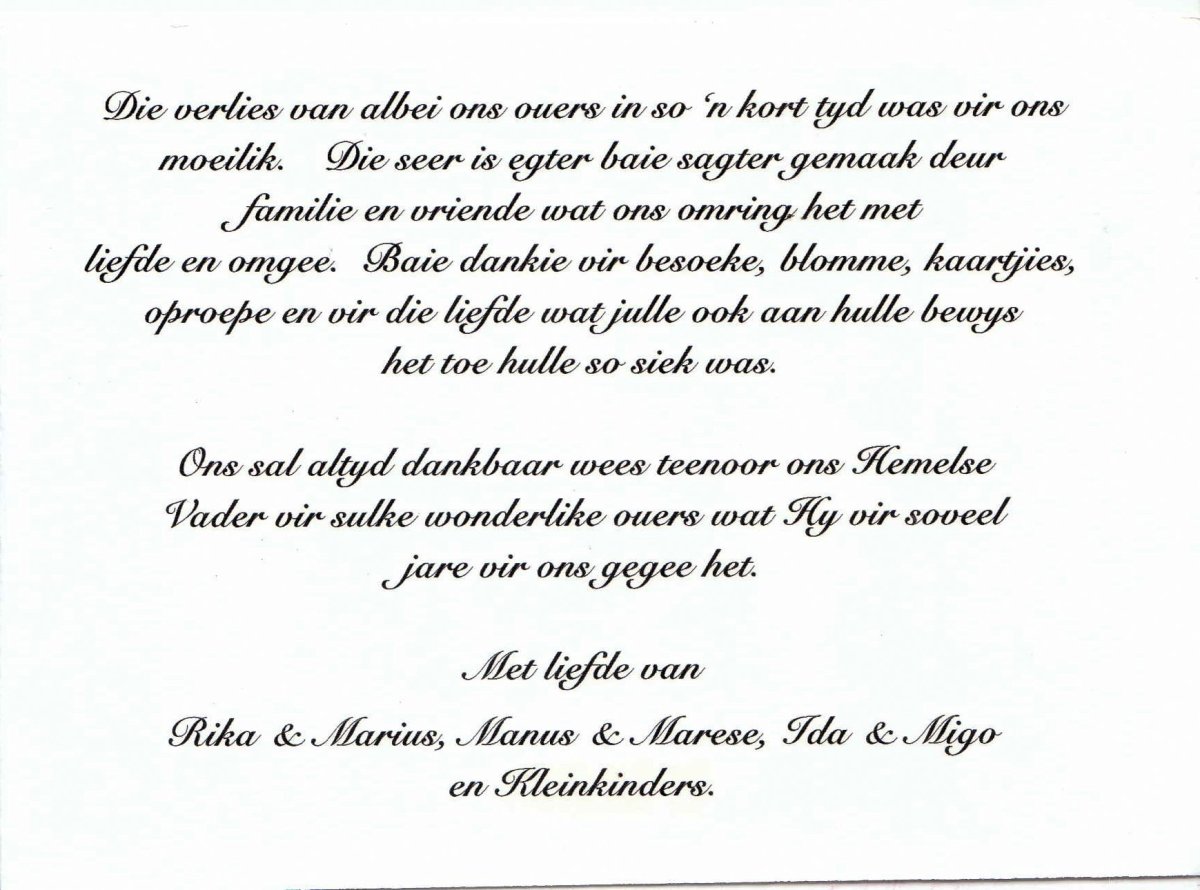 Die verlies van albei ons ouers in so ‘n kort tyd was vir ons
moeilik. Die seer is egter baie sagter gemaak deur
familie en vriende wat ons omring het met
liefde en omgee. Baie dankie vir besoeke, blomme, kaartjies,
oproepe en vir die liefde wat julle ook aan hulle bewys
het toe hulle so siek was.
Ons sal altyd dankbaar wees teenoor ons Hemelse
Vader vir sulke wonderlike ouers wat Hy vir soveel
jare vir ons gegee het.
Met liefde van
Rika & Marius, Manus & Marese, Ida & Migo
en Kleinkinders.